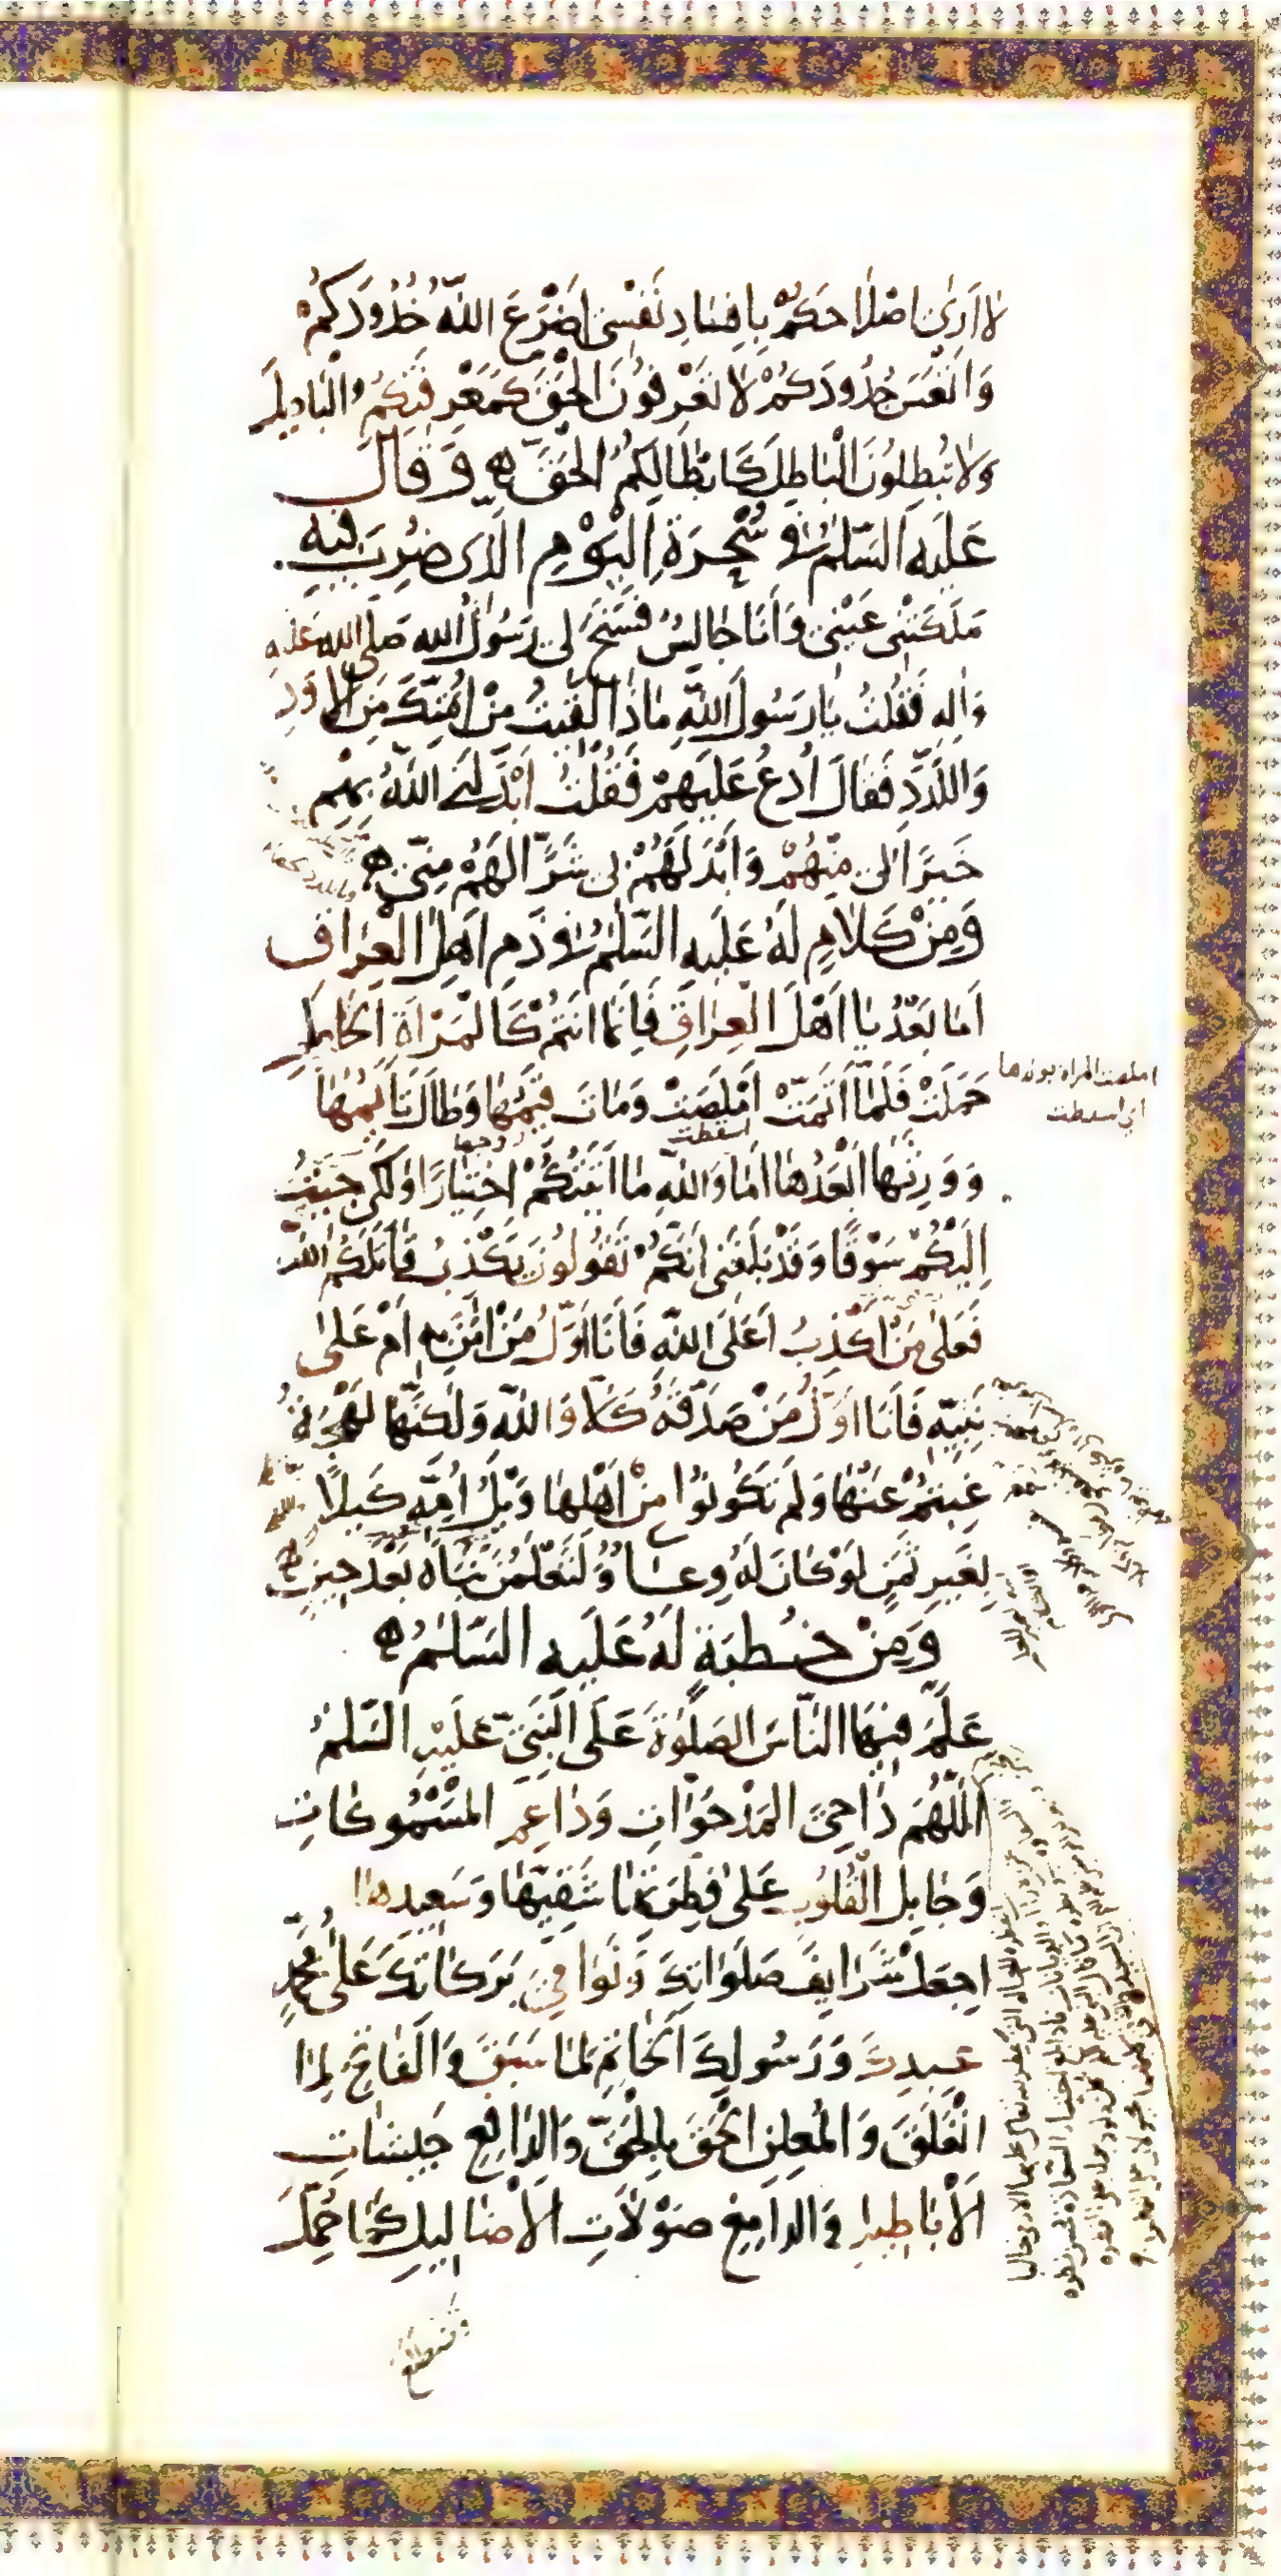 لا أرى إصلاحكم بإفساد نفسي أضرع الله خدودكم
وأتعس جدودكم لا تعرفون الحق كمعرفتكم الباطل
ولا تبطلون الباطل كإبطالكم الحق وقال
عليه السلم في سحرة اليوم الذي ضرب فيه
ملكتني عيني وأنا جالس فسنح لي رسول الله صلى الله عليه
وآله فقلت يا رسول الله ماذا لقيت من أمتك من الأود
واللدد فقال ادع عليهم فقلت أبدلني الله بهم
خيرا لي منهم وأبدلهم بي شرا لهم مني
ومن كلام له عليه السلم في ذم أهل العراق
أما بعد يا أهل العراق فإنما أنتم كالمرأة الحامل
حملت فلما أتمت أملصت ومات قيمها وطال تأيمها
أملصت المراة بولدها
أي اسقطت
اسقطت
زوجها
وورثها أبعدها أما والله ما أتيتكم اختيارا ولكن جيت
إليكم سوقا وقد بلغني أنكم تقولون يكذب قاتلكم الله
فعلى من أكذب أعلى الله فأنا أول من آمن به أم على
نبيه فأنا أول من صدقه كلا والله ولكنها لهجة
غبتم عنها ولم تكونوا من أهلها ويل أمه كيلا
بغير ثمن لو كان له وعاء ولتعلمن نبأه بعد حين
ومن خطبة له عليه السلم
علم فيها الناس الصلوة على النبي عليه السلم
اللهم داحي المدحوات وداعم المسموكات
وجابل القلوب على فطرتها شقيها وسعيدها
اجعل شرايف صلواتك ونوامي بركاتك على محمد
عبدك ورسولك الخاتم لما سبق والفاتح لما
انغلق والمعلن الحق بالحق والدافع جيشات
الأباطيل والدامغ صولات الأضاليل كما حمل